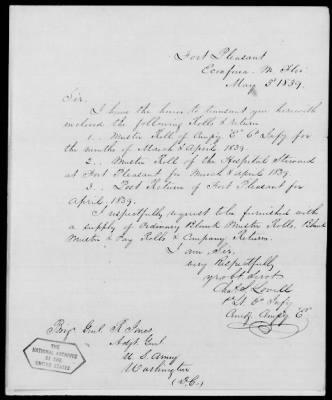 Fort Pleasant
Econfina M. Flor
May 3d 1839.
Sir.
I have the honor to transmit you herewith
enclosed the following Rolls & return
1.. Muster Roll of Compy "E" 6th Infy for
the months of March & April 1839.
2.. Muster Roll of the Hospital Steward
at Fort Pleasant for March & April 1839.
3.. Post Return of Fort Pleasant for
April, 1839.
I respectfully request to be furnished with
a supply of Ordinary Blank Muster Rolls, Blank
Muster & Pay Rolls & Company Return.
I am, Sir,
very Respectfully
yr obt servt
Chas S. Lovell
6th Infy
Comdg Compy "E"
Brig. Genl R Jones
Adgt Genl
U. S. Army
Washington
(D. C.)
THE
NATIONAL ARCHIVES
OF THE
UNITED STATES